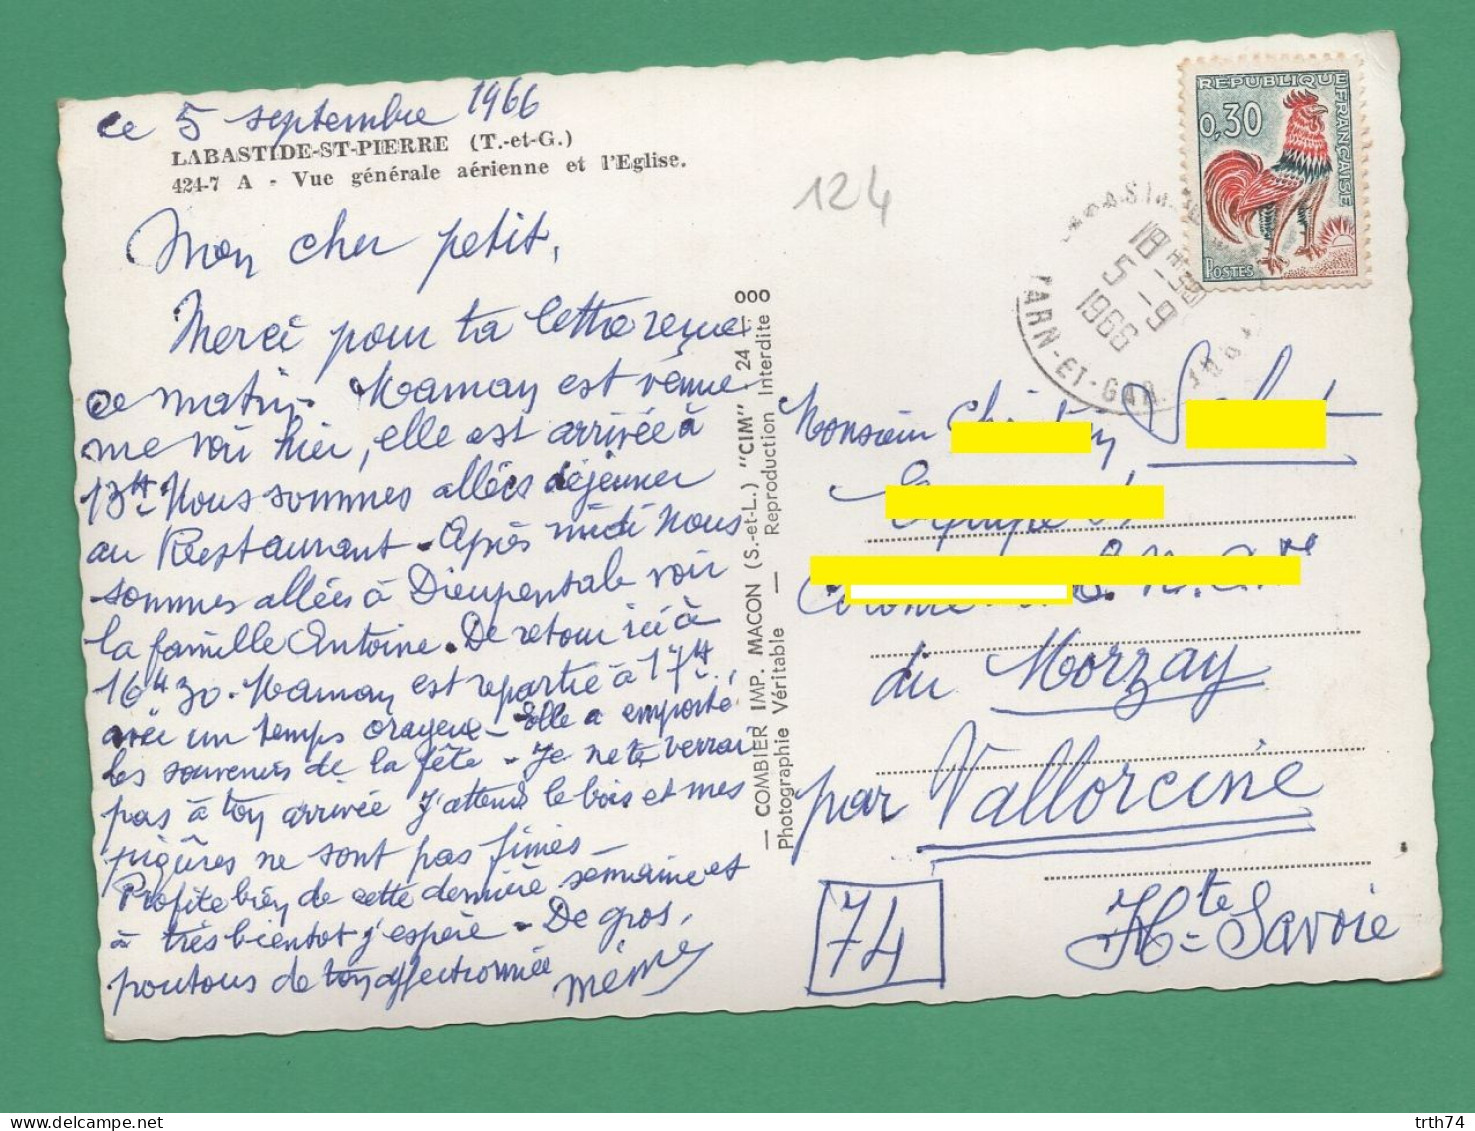 ce 5 septembre 1966
LABASTIDE-ST-PIERRE (T.-et-G.)
424-7 A - Vue générale aérienne et l'Eglise.
Mon cher petit,
Merci pour ta lettre reçue
ce matin. Maman est venue
me voir hier, elle est arrivée à
13H Nous sommes allées déjeuner
au Restaurant. Après midi nous
sommes allées à Dieupentale voir
la famille Antoine. De retour ici à
16H30. Maman est repartie à 17H,
avec un temps orageux. Elle a emporté
les souvenirs de la fête. Je ne te verrai
pas à ton arrivée j'attends le bois et mes
piqûres ne sont pas finies.
Profite bien de cette dernière semaine et
à très bientot j'espère. De gros,
poutous de ton affectionnée
mémé
— COMBIER IMP. MACON (S.-et-L.) "CIM" - 24 - 000
Photographie Véritable — Reproduction Interdite
124
REPUBLIQUE FRANÇAISE
0,30
POSTES
18H 5-9 1966
TARN-ET-GAR.
Monsieur
du Morzay
par Vallorcine
74
Hte Savoie
trth74